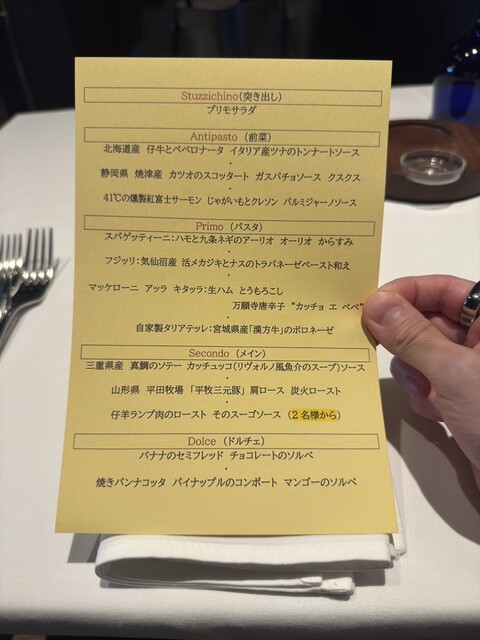 Stuzzichino(突き出し)
プリモサラダ
Antipasto (前菜)
北海道産 仔牛とペペロナータ イタリア産ツナのトンナートソース
・
静岡県 焼津産 カツオのスコッタート ガスパチョソース クスクス
・
41℃の燻製紅富士サーモン じゃがいもとクレソン パルミジャーノソース
Primo (パスタ)
スパゲッティーニ:ハモと九条ネギのアーリオ オーリオ からすみ
・
フジッリ:気仙沼産 活メカジキとナスのトラパネーゼペースト和え
・
マッケローニ アッラ キタッラ:生ハム とうもろこし
万願寺唐辛子 “カッチョ エ ペペ”
・
自家製タリアテッレ:宮城県産「漢方牛」のボロネーゼ
Secondo (メイン)
三重県産 真鯛のソテー カッチュッコ(リヴォルノ風魚介のスープ)ソース
・
山形県 平田牧場 「平牧三元豚」 肩ロース 炭火ロースト
・
仔羊ランプ肉のロースト そのスーゴソース (2名様から)
Dolce (ドルチェ)
バナナのセミフレッド チョコレートのソルベ
・
焼きパンナコッタ パイナップルのコンポート マンゴーのソルベ